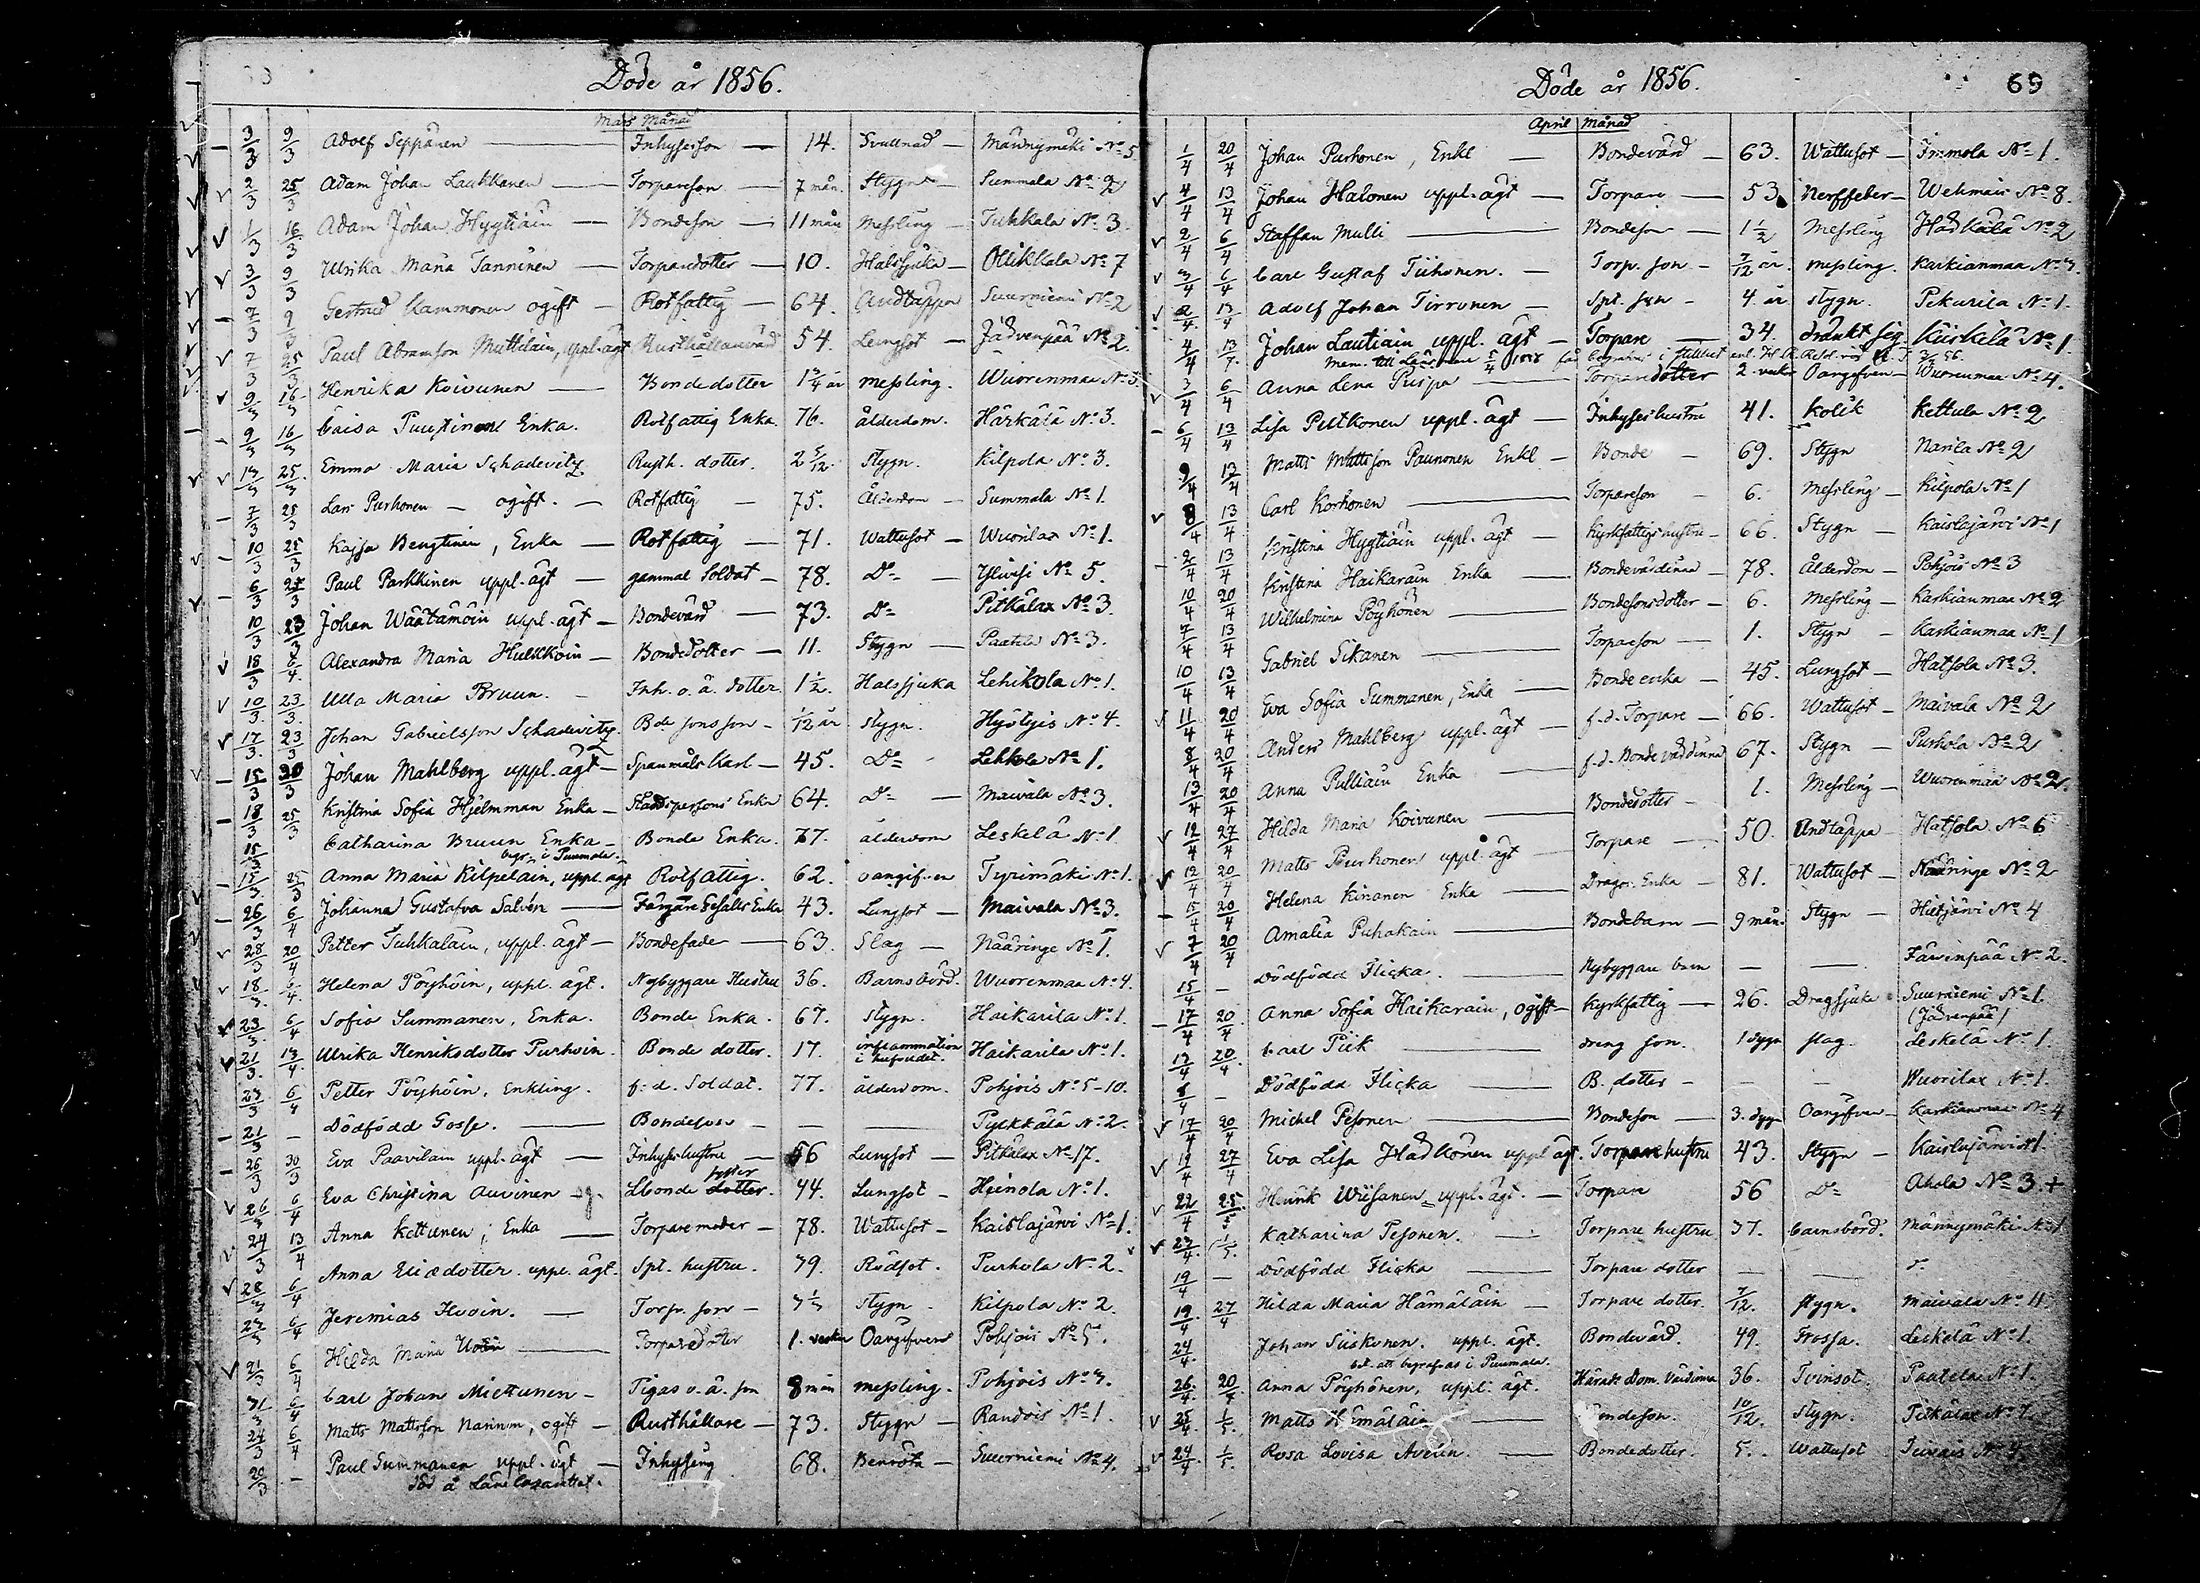 Döde år 1856.
Mars Månad
3/3 9/3 Adolf Seppänen — Inhyseson — 14. Svullnad — Männymäki No 5
2/3 25/3 Adam Johan Laukkanen — Torpareson — 7 mån. Stygn — Summala No 2
1/3 16/3 Adam Johan Hygtiäin — Bondeson — 11 mån Messling — Tuhkala No 3
3/3 9/3 Ulrika Maria Tanninen — Torparedotter — 10. Halssjuka — Ollikkala No 7
7/3 9/3 Gertrud Kammonen ogift — Rotfattig — 64. Andtäppa Suurniemi No 2
7/3 25/3 Paul Abramsson Muttilain, uppl. ägt Rusthållarevärd 54. Lungsot — Jädvenpää No 2
9/3 16/3 Henrika Koivunen — Bondedotter 1 3/4 år messling. Wuorenmaa No 3
9/3 16/3 Caisa Puustinen Enka. Rotfattig Enka. 76. ålderdom. Härkälä No 3.
13/3 25/3 Emma Maria Schadevitz Rusth. dotter. 2 5/12. Stygn. Kilpola No 3.
7/3 25/3 Lars Purhonen — ogift. — Rotfattig — 75. Ålderdom — Summala No 1.
10/3 25/3 Kajsa Bengtinen, Enka — Rotfattig — 71. Wattusot — Wuorilax No 1.
6/3 25/3 Paul Parkkinen uppl. ägt — gammal Soldat — 78. Do — Ylivesi No 5.
10/3 23/3 Johan Wäätämöin uppl. ägt — Bondevärd — 73. Do Pitkälax No 3.
18/3 6/4 Alexandra Maria Hulkkoin — Bondedotter — 11. Stygn — Paatela No 3.
10/3 23/3 Ulla Maria Bruun. — Inh. o. ä. dotter 1 1/2. Halssjuka Lehikola No 1.
17/3 23/3 Johan Gabrielsson Schadewitz. Bde sonsson — 1/12 år stygn. Hyötyis No 4.
15/3 30/3 Johan Mahlberg uppl. ägt — Spanmåls Karl — 45. Do Lehkola No 1.
18/3 25/3 Kristina Sofia Hjelmman Enka — Ståndspersons Enka 64. Do — Maivala No 3.
15/3 Catharina Bruun Enka — Bonde Enka. 77. ålderdom Leskelä No 1
begr. i Puumala.
15/3 25/3 Anna Maria Kilpeläin, uppl. ägt Rotfattig. 62. oangifven Tyrimäki No 1.
26/3 6/4 Johanna Gustafva Salvén — Färgare Gesälls Enka 43. Lungsot — Maivala No 3.
28/3 20/4 Petter Tuhkalain, uppl. ägt — Bondefader — 63. Slag — Nääringe No 1.
18/3 6/4 Helena Pöyhöin, uppl. ägt. Nybyggare Hustru 36. Barnsbörd. Wuorenmaa No 4.
23/3 6/4 Sofia Summanen, Enka. Bonde Enka. 67. stygn. Haikarila No 1.
21/3 13/4 Ulrika Henriksdotter Purhoin. Bonde dotter. 17. inflammation i hufvudet. Haikarila No 1.
23/3 6/4 Petter Pöyhöin, Enkling. f. d. Soldat. 77. ålderdom. Pohjois No 5-10.
21/3 — Dödfödd Gosse. — Bondeson — — — Pyckkälä No 2.
26/3 30/3 Eva Paavilain uppl. ägt — Inhyseshustru — 56 Lungsot — Pitkälax No 17.
26/3 6/4 Eva Christina Auvinen — g. Lbonde dotter. syster 44. Lungsot — Heinola No 1.
24/3 13/4 Anna Kettunen, Enka — Torpare moder — 78. Wattusot — Kaislajärvi No 1
28/3 6/4 Anna Eliædotter uppl. ägt. Spt. hustru. 79. Rödsot. Purhola No 2.
27/3 6/4 Jeremias Hvoin. — Torp. son — 3 1/3 stygn. Kilpola No 2.
21/3 6/4 Hilda Maria — Torparedotter 1. vecka Oangifven Pohjois No 5.
31/3 6/4 Carl Johan Miettunen — Pigas o. ä. son 8 mån messling. Pohjois No 3.
24/3 6/4 Matts Mattsson Narinen, ogift — Rusthållare — 73. Stygn — Randois No 1.
20/3 — Paul Summanen uppl. ägt — Inhysing 68. Benröta — Suurniemi No 4.
död å Länelazarettet.
Döde år 1856. 69
April Månad
1/4 20/4 Johan Purhonen, Enkl — Bondevärd — 63. Wattusot — Immola No 1.
4/4 13/4 Johan Halonen uppl. ägt — Torpare — 53. Nerffeber — Wehmais No 8.
2/4 6/4 Staffan Mulli — Bondeson — 1 1/2 Messling Hadkälä No 2
3/4 6/4 Carl Gustaf Tiihonen. — Torp. son — 7/12 år. messling. Karkianmaa No 3.
2/4 13/4 Adolf Johan Tirronen — Spt. son — 4 år stygn. Pekurila No 1.
4/4 13/7. Johan Lautiain uppl. ägt — Torpare — 34. dränkt sig Kiiskilä No 1.
3/4 6/4 Anna Lena Purpa — Torparedotter 2. veck Oangifven — Wuorenmaa No 4.
6/4 13/4 Lisa Pitkonen uppl. ägt — Inhyseshustru 41. Kolik Kettula No 2
9/4 13/4 Matts Mattsson Paunonen Enkl — Bonde — 69. Stygn Narila No 2
8/4 13/4 Carl Korhonen — Torpareson — 6. Messling — Kilpola No 1
2/4 13/4 Kristina Hygtiäin uppl. ägt — Kyrkfattigs hustru — 66. Stygn — Kaislajärvi No 1
10/4 20/4 Kristina Haikarain Enka — Bondevärdinna — 78. Ålderdom — Pohjois No 3
7/4 13/4 Wilhelmina Pöyhönen — Bondesonsdotter — 6. Messling — Karkianmaa No 2
10/4 13/4 Gabriel Sikanen — Torpareson — 1. Stygn — Karkianmaa No 1
11/4 20/4 Eva Sofia Summanen, Enka — Bonde enka — 45. Lungsot — Hatsola No 3.
8/4 20/4 Anders Mahlberg uppl. ägt — f. d. Torpare — 66. Wattusot — Maivala No 2
13/4 20/4 Anna Pulliain Enka — f. d. Bonde värdinna 67. Stygn — Purhola No 2
12/4 27/4 Hilda Maria Koivunen — Bondedotter — 1. Messling — Wuorenmaa No 2.
12/4 20/4 Matts Purhonen uppl. ägt — Torpare — 50. Andtäppa Hatsola No 6
15/4 20/4 Helena Kinanen Enka — Dragon Enka — 81. Wattusot — Nääringe No 2
7/4 20/4 Amalia Puhakain — Bondebarn — 9 mån. Stygn — Hietjärvi No 4
15/4 — Dödfödd Flicka. — Nybyggare barn — — Järvenpää No 2.
17/4 20/4 Anna Sofia Haikarain, ogift — Kyrkfattig — 26. Dragsjuka Suurniemi No 1.
(Jädvenpää)
17/4 20/4 Carl Piik — dreng son. 1 dygn slag. Leskelä No 1.
8/4 — Dödfödd Flicka — B. dotter — — — Wuorilax No 1.
17/4 20/4 Michel Pesonen — Bondeson — 3. dygn Oangifven — Karkianmaa No 4
19/4 27/4 Eva Lisa Hadkönen uppl. ägt. Torpare hustru 43. Stygn — Kaislajärvi No 1.
22/4 25/5 Henrik Wiisanen uppl. ägt. — Torpare 56 Do Ahola No 3. +
27/4. 1/5. Katharina Pesonen. — Torpare hustru 37. barnsbörd. Männymäki No 1
19/4 — Dödfödd Flicka — Torpare dotter — —
19/4. 27/4 Hilda Maria Hämäläin — Torpare dotter 7/12. stygn. Maivala No 11
24/4. Johan Siiskonen. uppl. ägt. Bondevärd. 49. Frossa. Leskelä No 1.
bet. att begrafvas i Puumala.
26/4. 20/4. Anna Pöyhönen, uppl. ägt. Härads Dom. Värdinna 36. Tvinsot. Paatela No 1.
25/4. 1/5. Matts Hämäläin — Bondeson. 10/12. Stygn. Pitkälax No 7.
24/4. 1/5. Rosa Lovisa Averin. — Bondedotter. 5. Wattusot